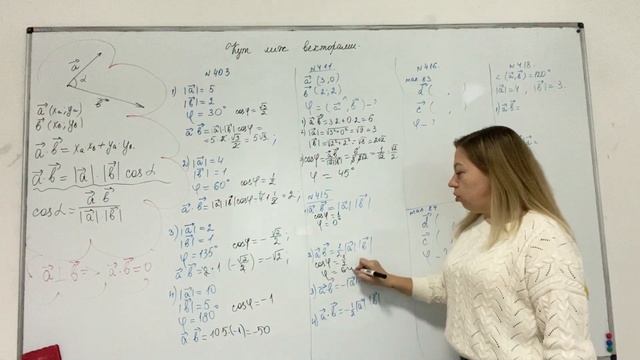 Кут між векторами.
a⃗
α
b⃗
a⃗ (xₐ; yₐ)
b⃗ (x_b, y_b)
a⃗·b⃗ = xₐ x_b + yₐ y_b
a⃗ b⃗ = |a⃗|·|b⃗| cos α
cos α = a⃗ b⃗ / |a⃗| |b⃗|
a⃗ ⊥ b⃗ = , a⃗·b⃗ = 0
N 403
1) |a⃗| = 5
|b⃗| = 2
φ = 30° cos φ = √3/2
a⃗ b⃗ = |a⃗|·|b⃗| cos φ =
= 5·2·√3/2 = 5√3;
2) |a⃗| = 4
|b⃗| = 1
φ = 60° cos φ = 1/2
a⃗·b⃗ = |a⃗| |b⃗| cos φ = 4·1/2 = 2;
3) |a⃗| = 2
|b⃗| = 1
φ = 135° cos φ = -√2/2
a⃗ b⃗ = 2·1·(-√2/2) = -√2;
4) |a⃗| = 10
|b⃗| = 5
φ = 180 cos φ = -1
a⃗ b⃗ = 10·5·(-1) = -50
N 411
a⃗ (3,0)
b⃗ (2,2)
φ = (a⃗, b⃗) - ?
1) a⃗ b⃗ = 3·2 + 0·2 = 6
φ = 45°
N 415
cos φ = 1
φ = 0°
2) a⃗ b⃗ = 1/2 |a⃗| |b⃗|
cos φ = 1/2
3) a⃗ b⃗ = -|a⃗|
4) a⃗·b⃗ = -1/2 |a⃗| |b⃗|
N 416
мал. 83
a⃗ ( ,
c⃗ ( ,
φ - ?
мал. 84
d⃗ (
c⃗ (
φ - ?
N 418
∠(a⃗, b⃗) = 120°
|a⃗| = 4, |b⃗| = 3.
1) a⃗ b⃗ =